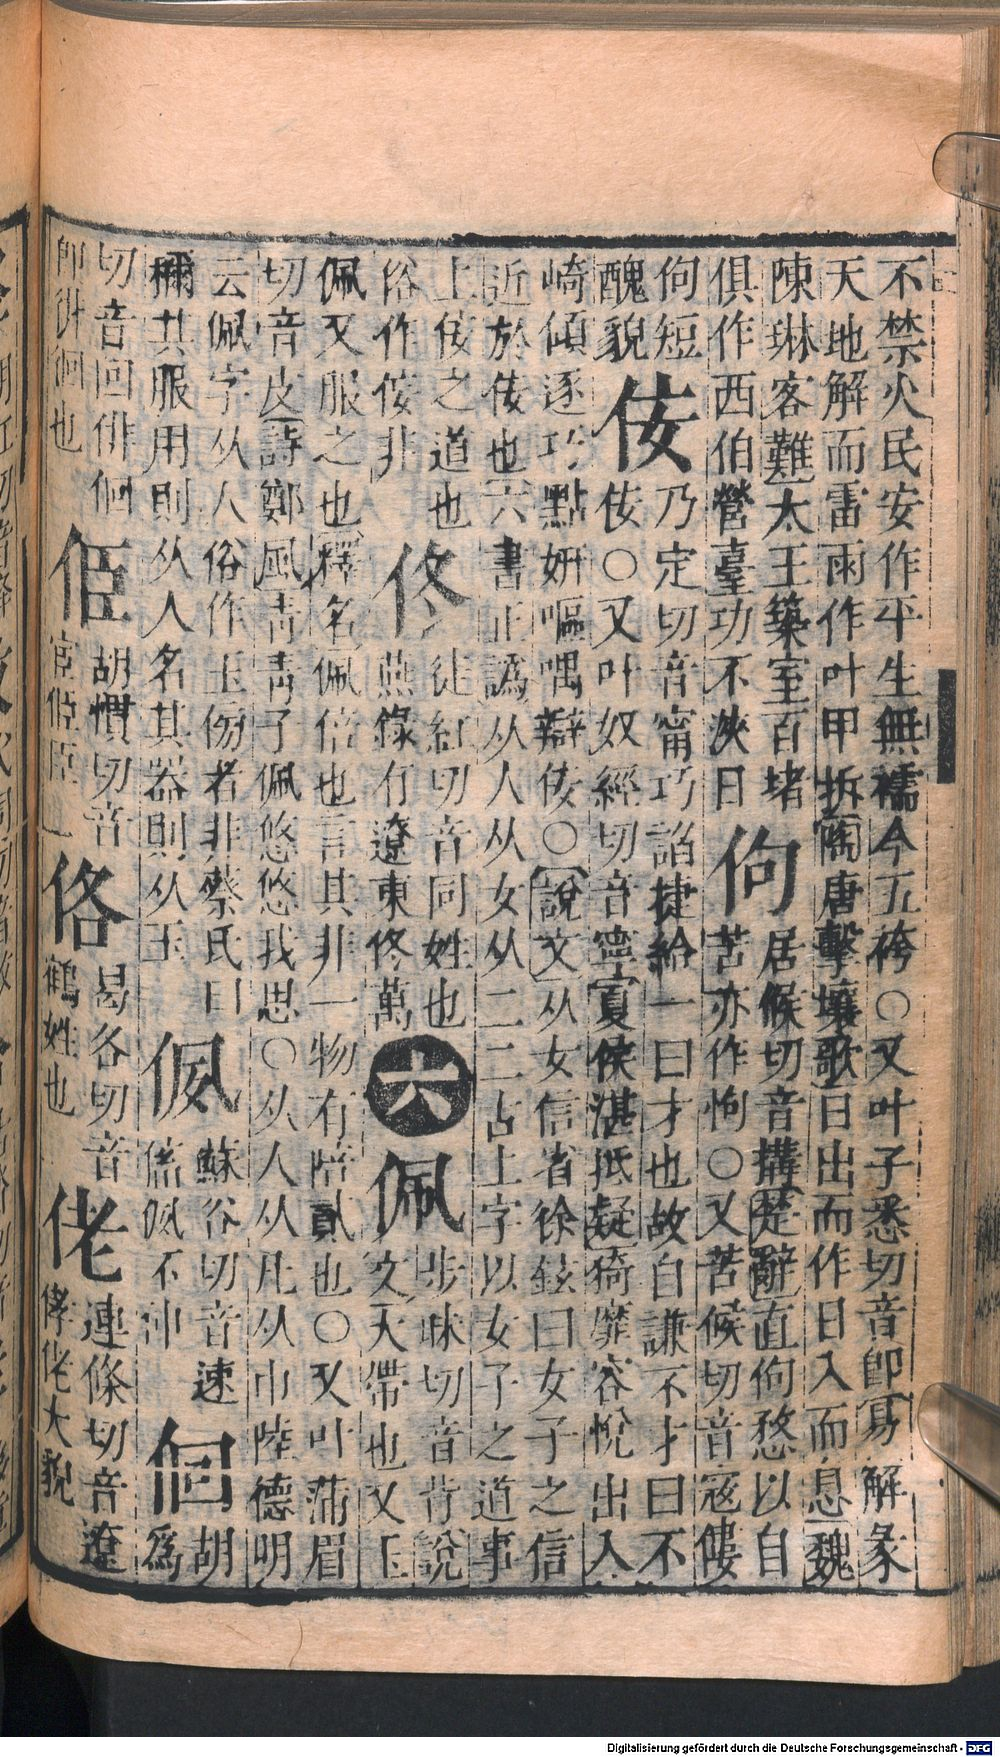 不禁火民安作平生無襦今五袴○又叶子悉切音卽易解彖
天地解而雷雨作叶甲拆陶唐擊壤歌日出而作日入而息魏
陳琳客難太王築室百堵俱作西伯營臺功不浹日
佝
居候切音搆楚辭直佝愗以自苦亦作怐○又苦候切音寇僂佝短醜貌
佞
乃定切音甯巧諂捷給一曰才也故自謙不才曰不佞○又叶奴經切音寧夏侯湛抵疑猗靡容悅出入崎傾逐巧點妍嘔喁辯佞○說文从女信省徐鉉曰女子之信近於佞也六書正譌从人从女从二二古上字以女子之道事上佞之道也俗作佞非
佟
徒紅切音同姓也燕錄有遼東佟萬
六
佩
步昧切音背說文大帶也又玉佩又服之也釋名佩倍也言其非一物有陪貳也○又叶蒲眉切音皮詩鄭風青青子佩悠悠我思○从人从凡从巾陸德明云佩字从人俗作玉傍者非蔡氏曰
獮其服用則从人名其器則从玉
㑉
蘇谷切音速㑉不冲
佪
胡爲切音回俳佪卽徘徊也
𠈁
胡慣切音宦
佫
曷各切音鶴姓也
佬
連條切音遼佬大貌
Digitalisierung gefördert durch die Deutsche Forschungsgemeinschaft - DFG